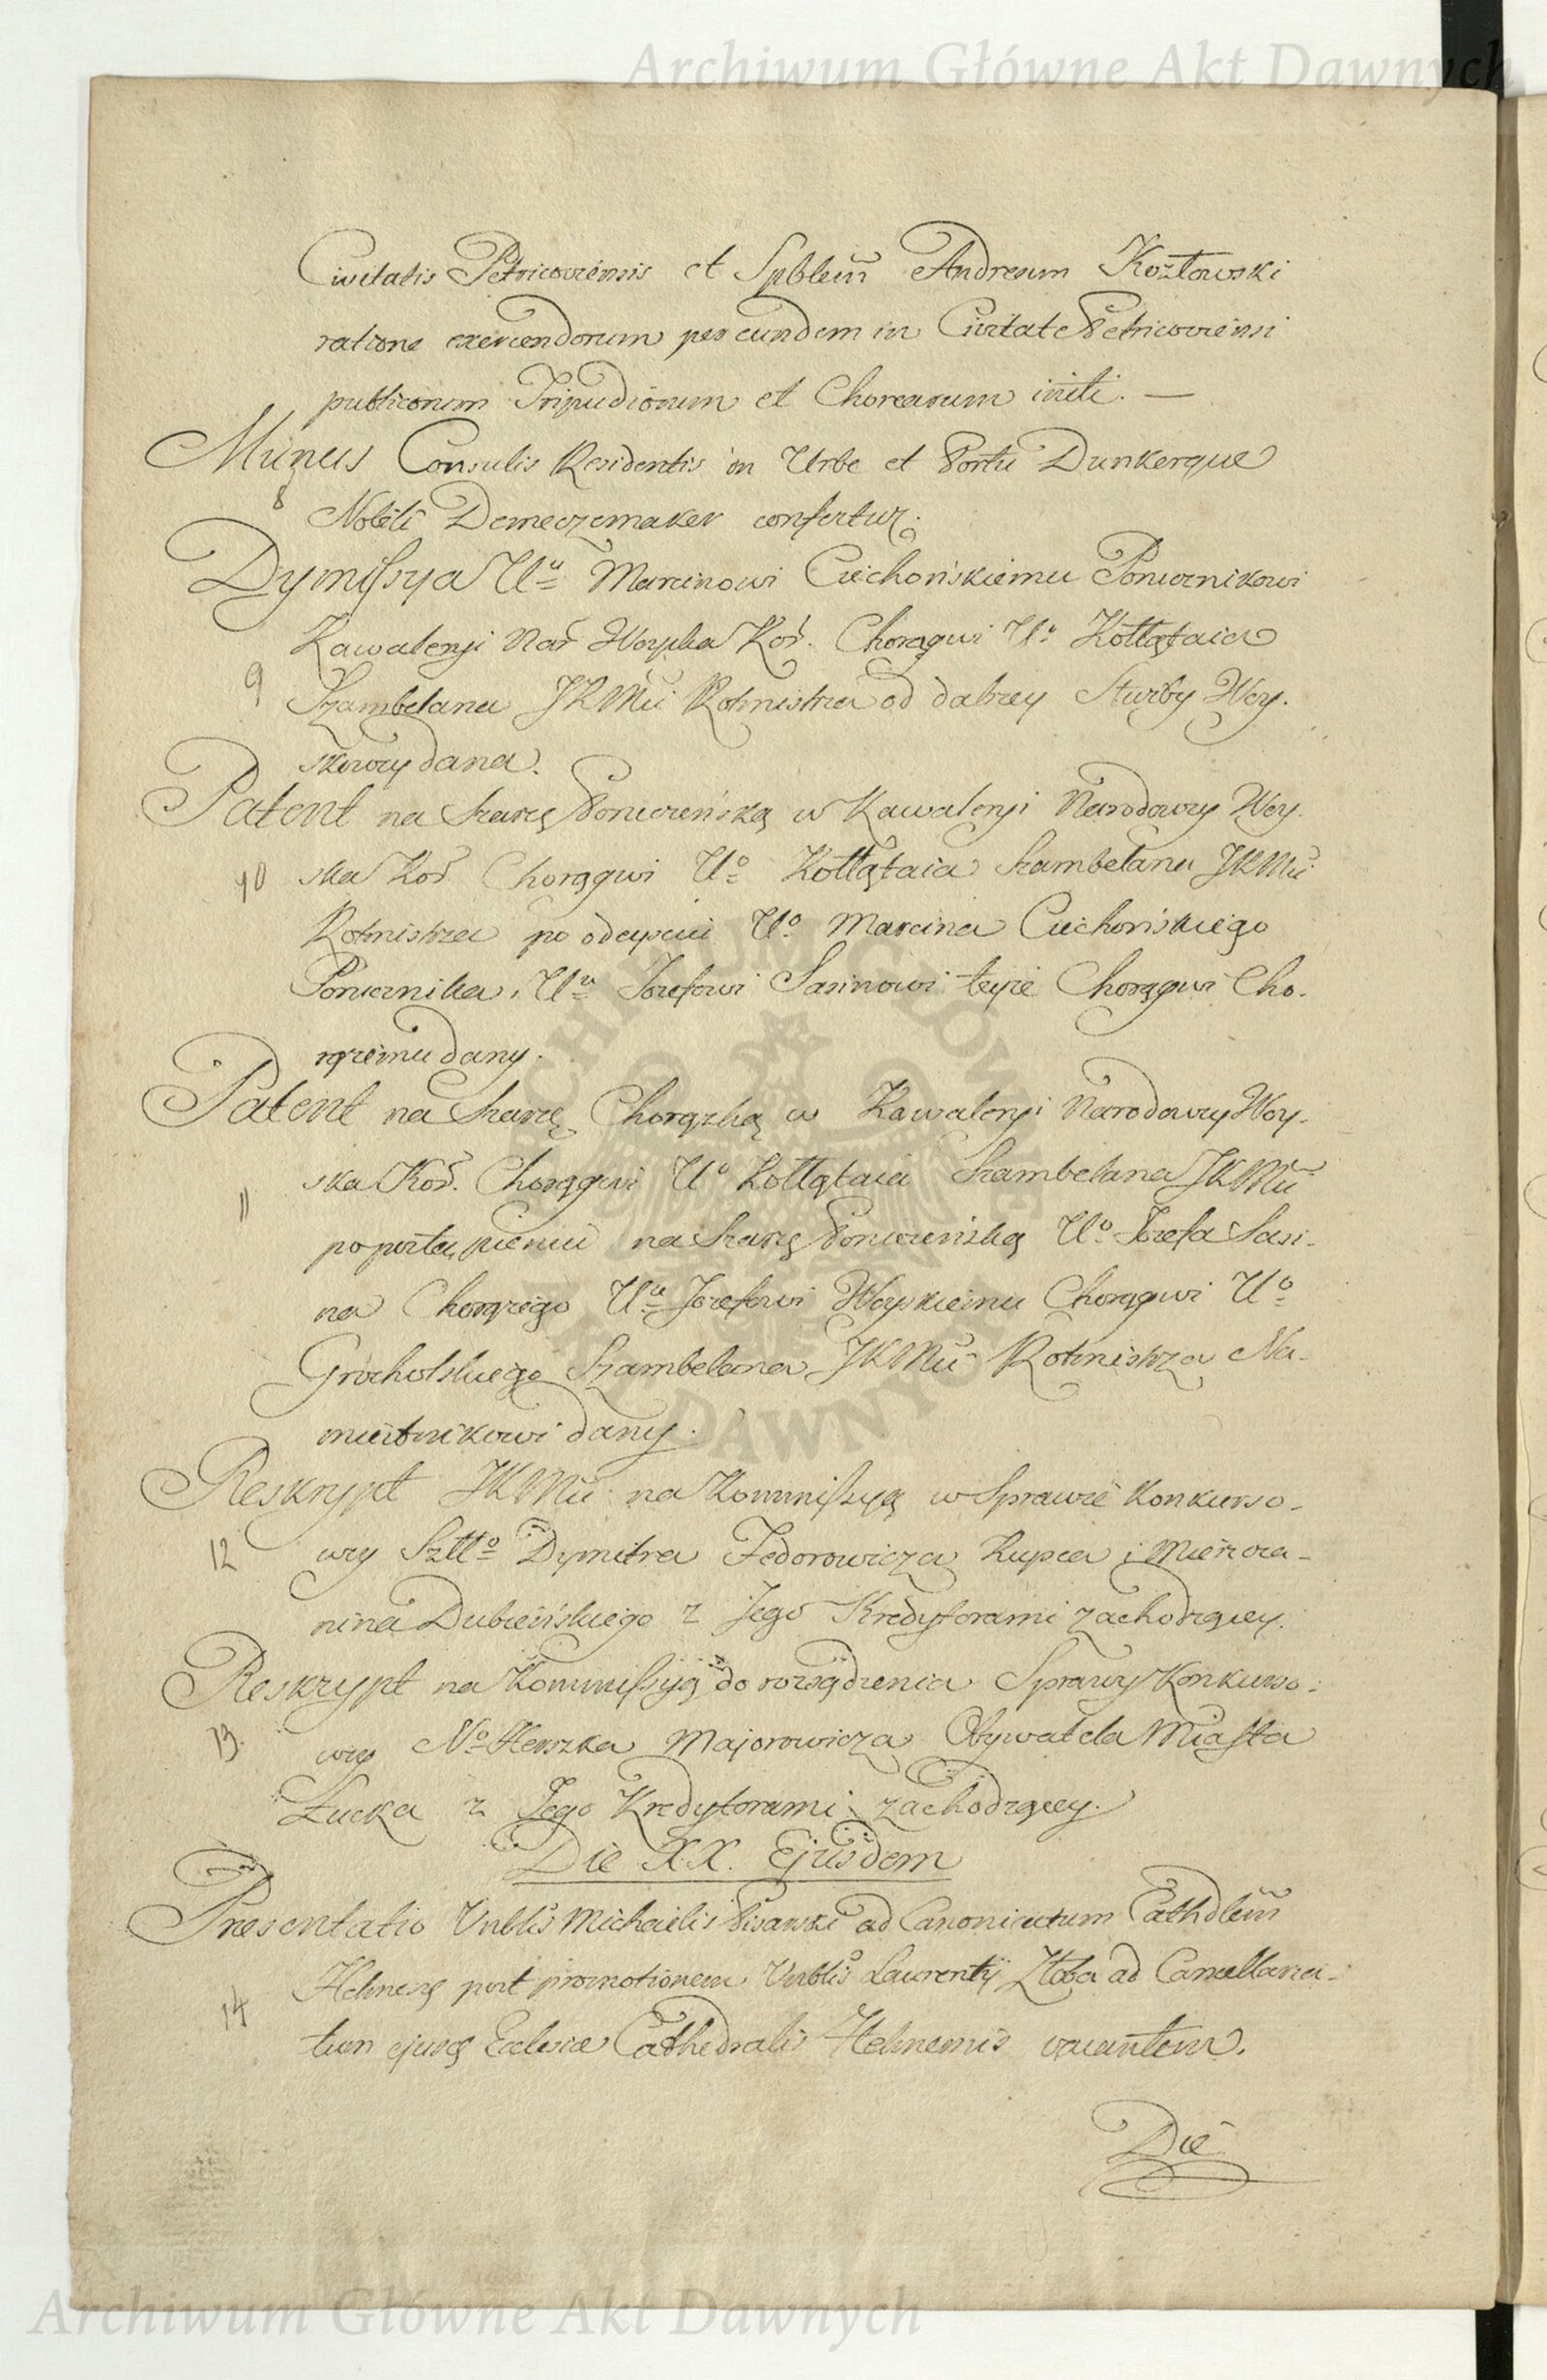 Archiwum Główne Akt Dawnych
Civitatis Petricoviensis et Spblem̃ Andream Kozłowski
ratione exercendorum per eundem in Civitate Petricoviensi
publicorum Tripudiorum et Chorearum initi. —
Munus Consulis Residentis in Urbe et Portu Dunkerque
8
Nobili Demeczemaker confertur.
Dymissya Uu Marcinowi Ciechońskiemu Porucznikowi
Kawaleryi Nar Woyska Kor. Chorągwi Uo Kołłątaia
9
Szambelana JKMci Rotmistrza od dalszey Służby Woy-
skowey dana.
Patent na szarżę Poruczeńską w Kawaleryi Narodowey Woy-
10
ska Kor. Chorągwi Uo Kołłątaia Szambelana JKMci
Rotmistrza po odeyściu Uo Marcina Ciechońskiego
Porucznika, Uu Jozefowi Sasinowi teyże Chorągwi Cho-
rążemu dany.
Patent na szarżę Chorążką w Kawaleryi Narodowey Woy-
11
ska Kor. Chorągwi Uo Kołłątaia Szambelana JKMci
po postąpieniu na szarżę Poruczeńską Uo Jozefa Sasi-
na Chorążego Uu Jozefowi Woyskiemu Chorągwi Uo
Grocholskiego Szambelana JKMci Rotmistrza Na-
miestnikowi dany.
Reskrypt JKMci na Kommissyą w Sprawie Konkurso-
12
wey Sztto Dymitra Fedorowicza Kupca i Mieszcza-
nina Dubieńskiego z Jego Kredytorami zachodzącey.
Reskrypt na Kommissyą do rozsądzenia Sprawy Konkurso-
13.
wey No Herszka Majorowicza Obywatela Miasta
Łucka z Jego Kredytorami zachodzącey.
Die XX. Ejusdem
Presentatio Vnblis Michaelis Pisarski ad Canonicatum Cathdlem̃
14
Helmesę post promotionem Vnblis Laurentij Złoba ad Cancellaria-
tum ejusę Eclesiæ Cathedralis Helmensis vacantem.
Die
Archiwum Główne Akt Dawnych